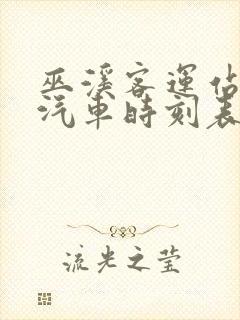 巫溪客运站
汽車時刻表
流光之莹